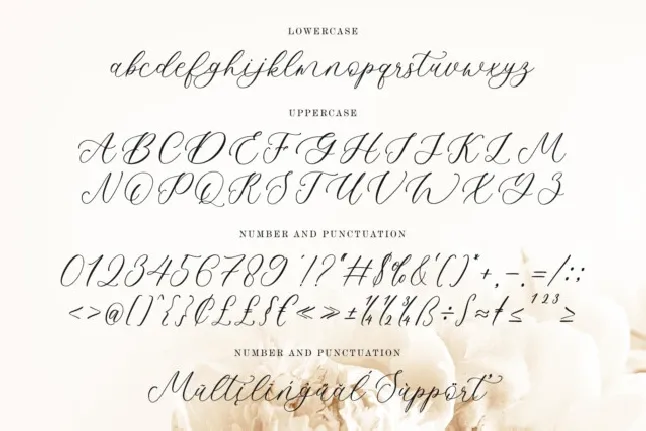 LOWERCASE
abcdefghijklmnopqrstuvwxyz
UPPERCASE
ABCDEFGHIJKLM
NOPQRSTUVWXYZ
NUMBER AND PUNCTUATION
0123456789'!?"#$%&'()*+,-.=/:;
<>@[]^{}₡£₤§€«»±¼½¾ß÷∫≈≠≤¹²³≥
NUMBER AND PUNCTUATION